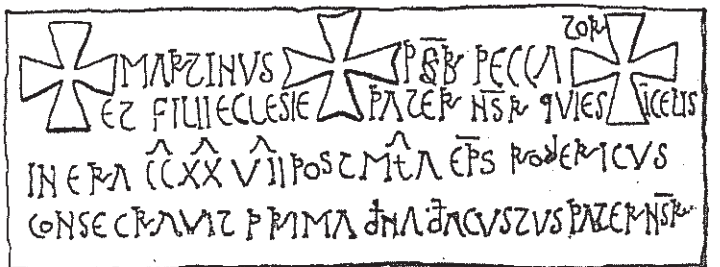 TOR
MARTINVS PSBR PECCA
ET FILII ECLESIE PATER NSR qVIES iCELIS
IN ERA CCXXVII POST MtA EPS RodERICVS
CONSECRAVIT PRIMA dNA dACVSTVS PATER NSR